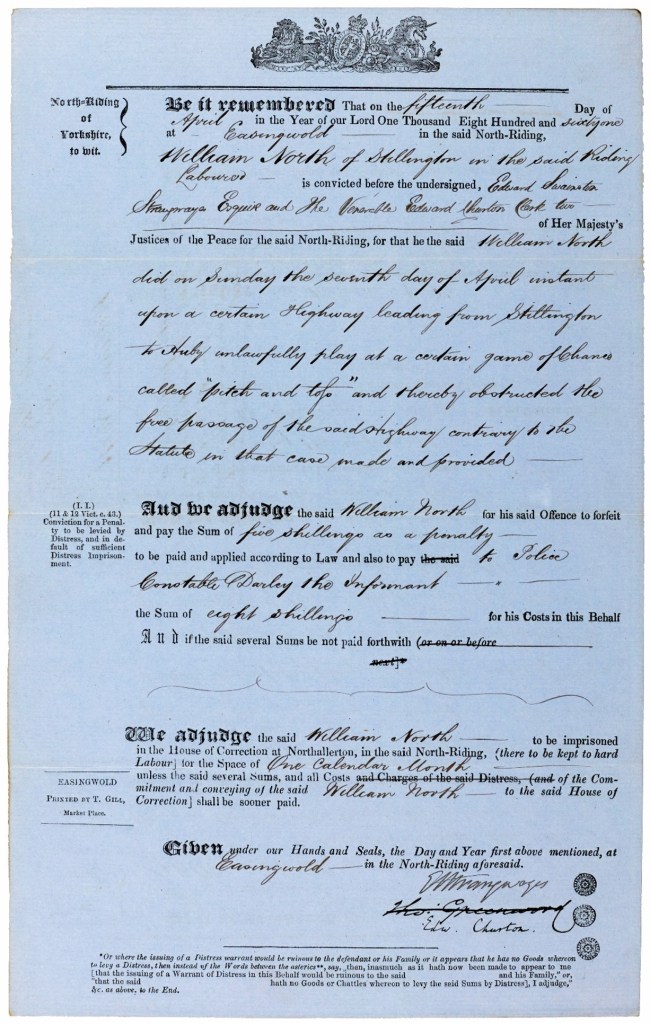 North-Riding
of
Yorkshire,
to wit.
Be it remembered That on the fifteenth Day of
April in the Year of our Lord One Thousand Eight Hundred and sixtyone
at Easingwold in the said North-Riding,
William North of Stillington in the said Riding
Labourer is convicted before the undersigned, Edward Swainston
Strangwayes Esquire and The Venerable Edward Churton Clerk two
of Her Majesty's
Justices of the Peace for the said North-Riding, for that he the said William North
did on Sunday the seventh day of April instant
upon a certain Highway leading from Stillington
to Huby unlawfully play at a certain game of Chance
called "pitch and toss" and thereby obstructed the
free passage of the said Highway contrary to the
Statute in that case made and provided
(I. I.)
(11 & 12 Vict. c. 43.)
Conviction for a Penal-
ty to be levied by
Distress, and in de-
fault of sufficient
Distress Imprison-
ment.
And we adjudge the said William North for his said Offence to forfeit
and pay the Sum of five shillings as a penalty
to be paid and applied according to Law and also to pay the said to Police
Constable Darley the Informant "
the Sum of eight shillings for his Costs in this Behalf
And if the said several Sums be not paid forthwith (or on or before
next]*
We adjudge the said William North to be imprisoned
in the House of Correction at Northallerton, in the said North-Riding, (there to be kept to hard
Labour] for the Space of One Calendar Month
unless the said several Sums, and all Costs and Charges of the said Distress, (and of the Com-
mitment and conveying of the said William North to the said House of
Correction] shall be sooner paid.
EASINGWOLD
PRINTED BY T. GILL,
Market Place.
Given under our Hands and Seals, the Day and Year first above mentioned, at
Easingwold in the North-Riding aforesaid.
Thos. Greenwood
Edw. Churton.
*Or where the issuing of a Distress warrant would be ruinous to the defendant or his Family or it appears that he has no Goods whereon
to levy a Distress, then instead of the Words between the asterics**, say, then, inasmuch as it hath now been made to appear to me
[that the issuing of a Warrant of Distress in this Behalf would be ruinous to the said and his Family," or,
"that the said hath no Goods or Chattles whereon to levy the said Sums by Distress], I adjudge,"
&c. as above, to the End.